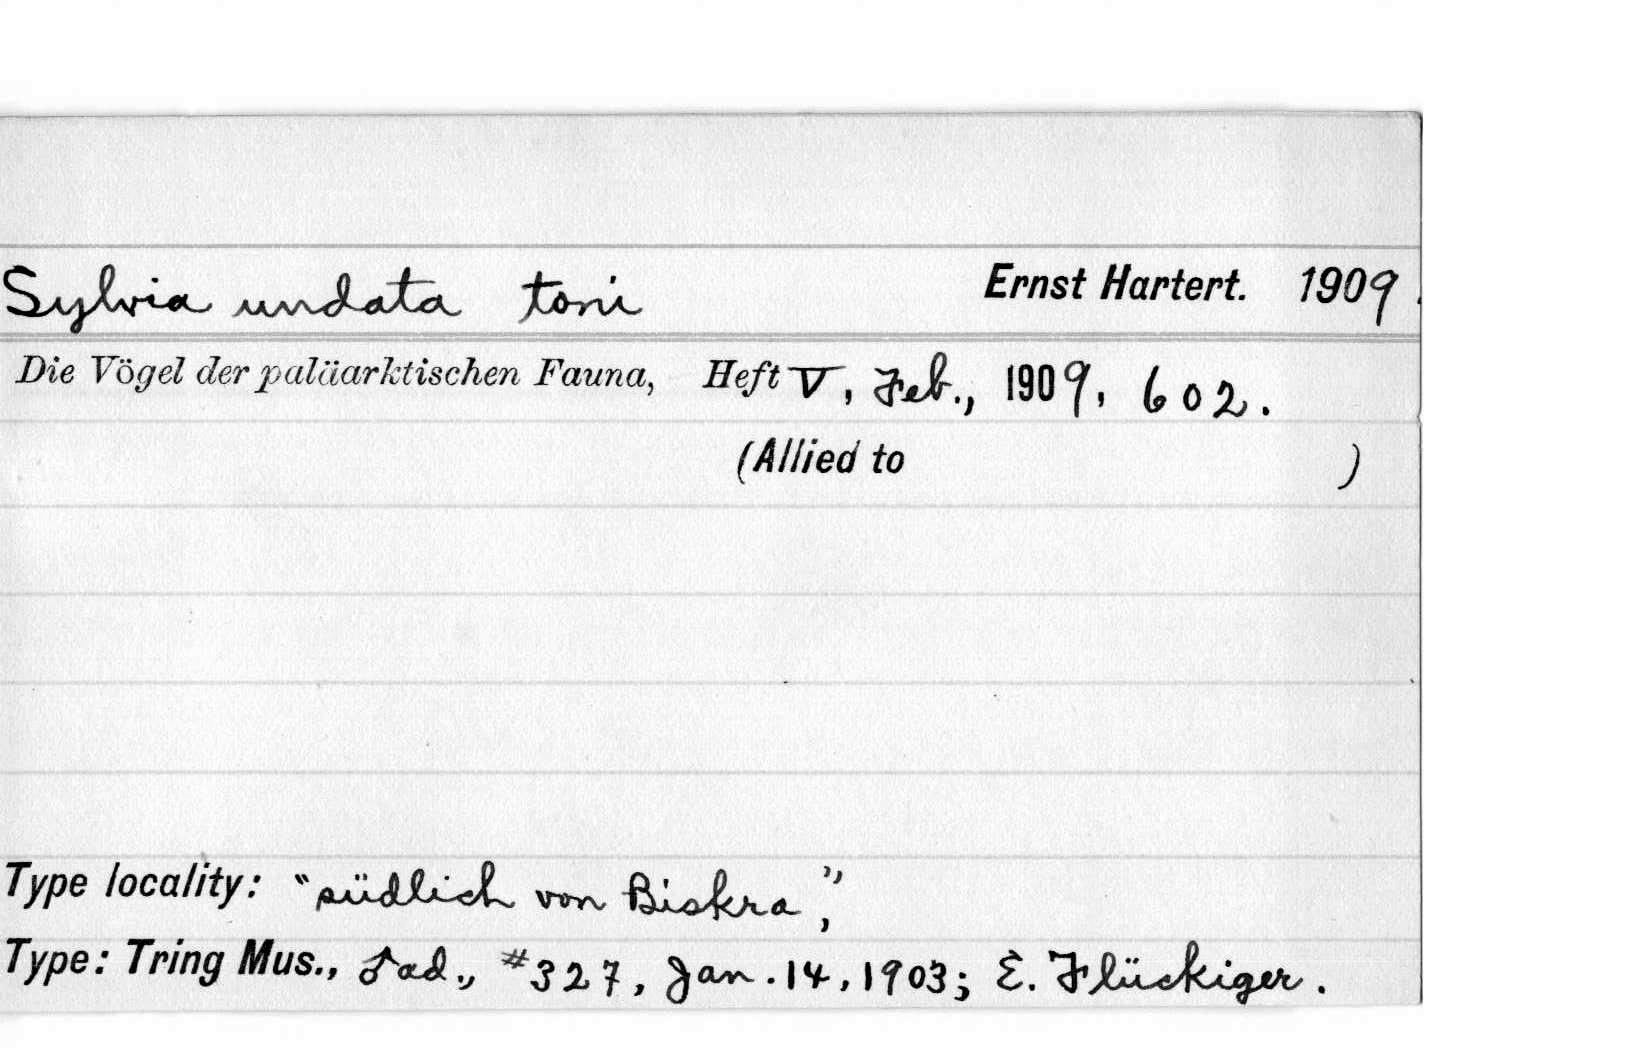 Sylvia undata toni Ernst Hartert. 1909.
Die Vögel der paläarktischen Fauna, Heft V, Feb., 1909, 602.
(Allied to )
Type locality: "südlich von Biskra",
Type: Tring Mus., ♂ad., #327, Jan. 14, 1903; E. Flückiger.